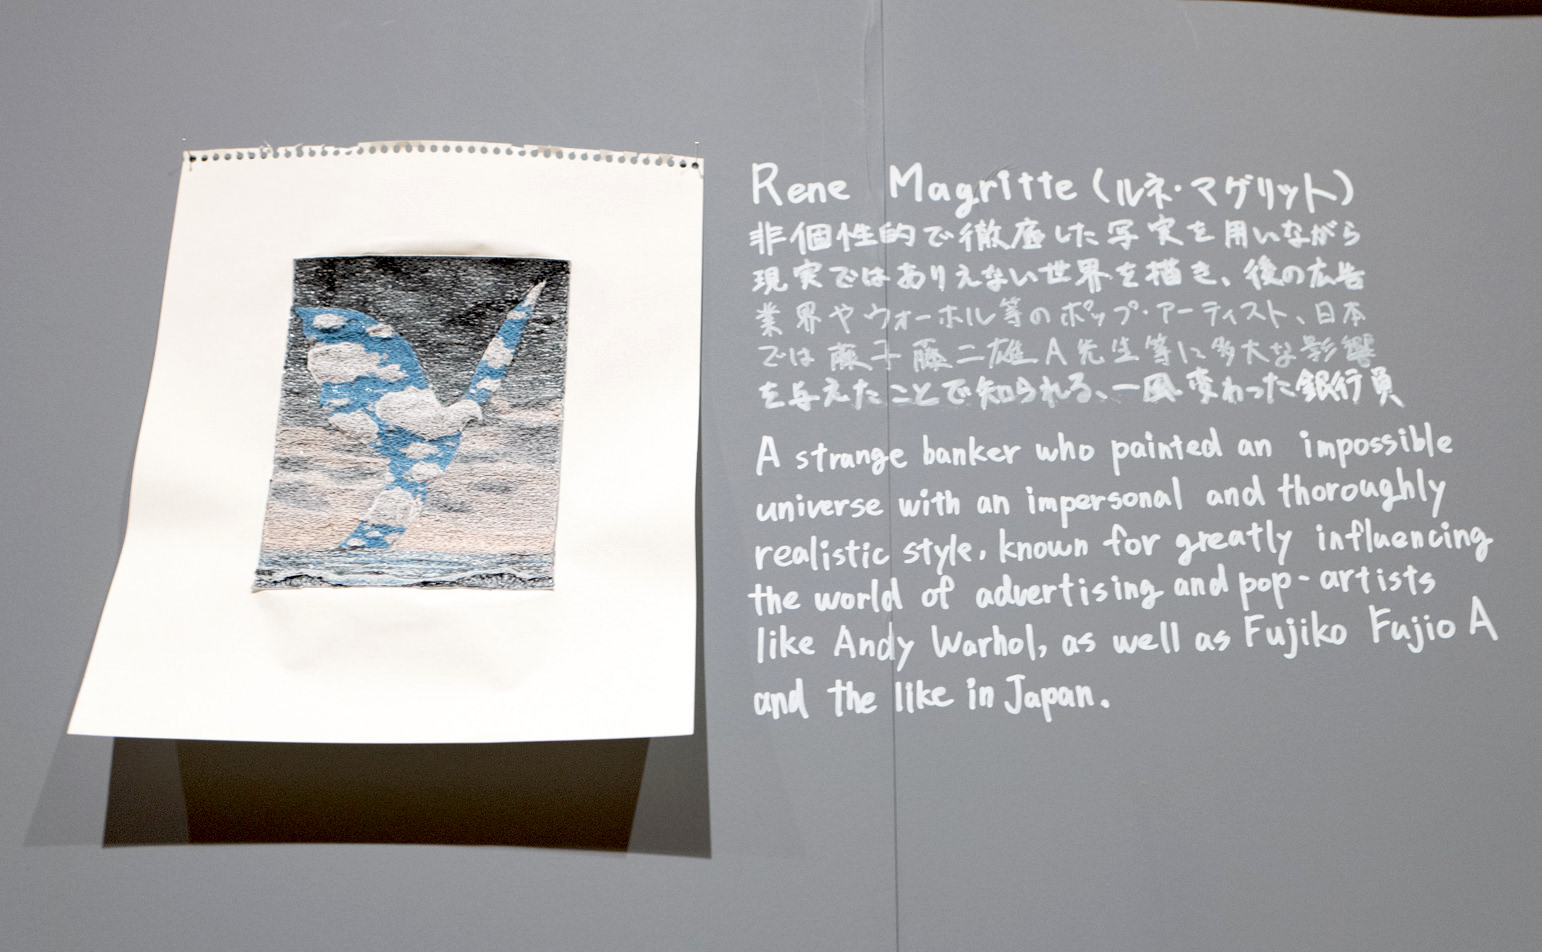 Rene Magritte (ルネ・マグリット)
非個性的で徹底した写実を用いながら
現実ではありえない世界を描き、後の広告
業界やウォーホル等のポップ・アーティスト、日本
では藤子藤二雄A先生等に多大な影響
を与えたことで知られる、一風変わった銀行員
A strange banker who painted an impossible
universe with an impersonal and thoroughly
realistic style, known for greatly influencing
the world of advertising and pop-artists
like Andy Warhol, as well as Fujiko Fujio A
and the like in Japan.